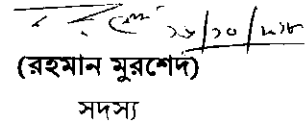 (রহমান মুরশেদ)
সদস্য